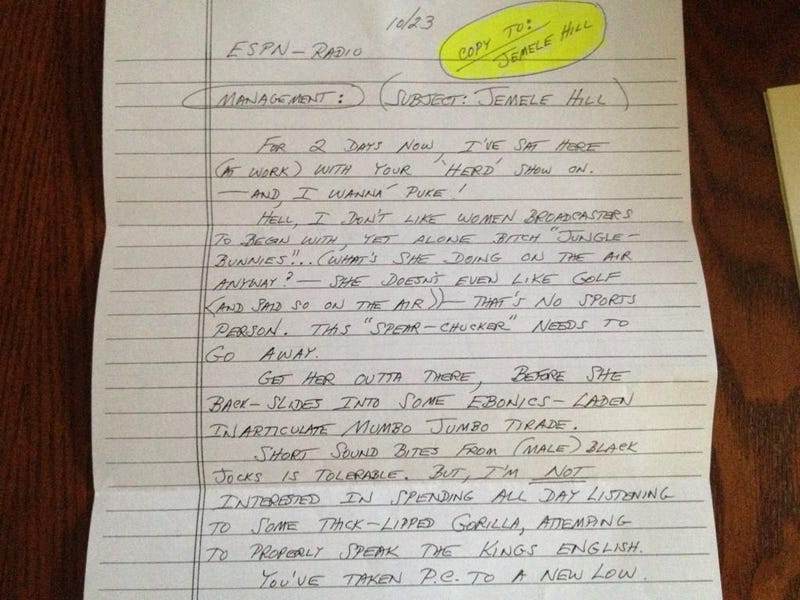 10/23
COPY TO:
JEMELE HILL
ESPN-RADIO
MANAGEMENT: (SUBJECT: JEMELE HILL)
FOR 2 DAYS NOW, I'VE SAT HERE
(AT WORK) WITH YOUR 'HERD' SHOW ON.
—AND, I WANNA' PUKE!
HELL, I DON'T LIKE WOMEN BROADCASTERS
TO BEGIN WITH, YET ALONE BITCH "JUNGLE-
BUNNIES"..(WHAT'S SHE DOING ON THE AIR
ANYWAY? — SHE DOESN'T EVEN LIKE GOLF
(AND SAID SO ON THE AIR))— THAT'S NO SPORTS
PERSON. THIS "SPEAR-CHUCKER" NEEDS TO
GO AWAY.
GET HER OUTTA THERE, BEFORE SHE
BACK-SLIDES INTO SOME EBONICS-LADEN
INARTICULATE MUMBO JUMBO TIRADE.
SHORT SOUND BITES FROM (MALE) BLACK
JOCKS IS TOLERABLE. BUT, I'M NOT
INTERESTED IN SPENDING ALL DAY LISTENING
TO SOME THICK-LIPPED GORILLA, ATTEMPING
TO PROPERLY SPEAK THE KINGS ENGLISH.
YOU'VE TAKEN P.C. TO A NEW LOW.